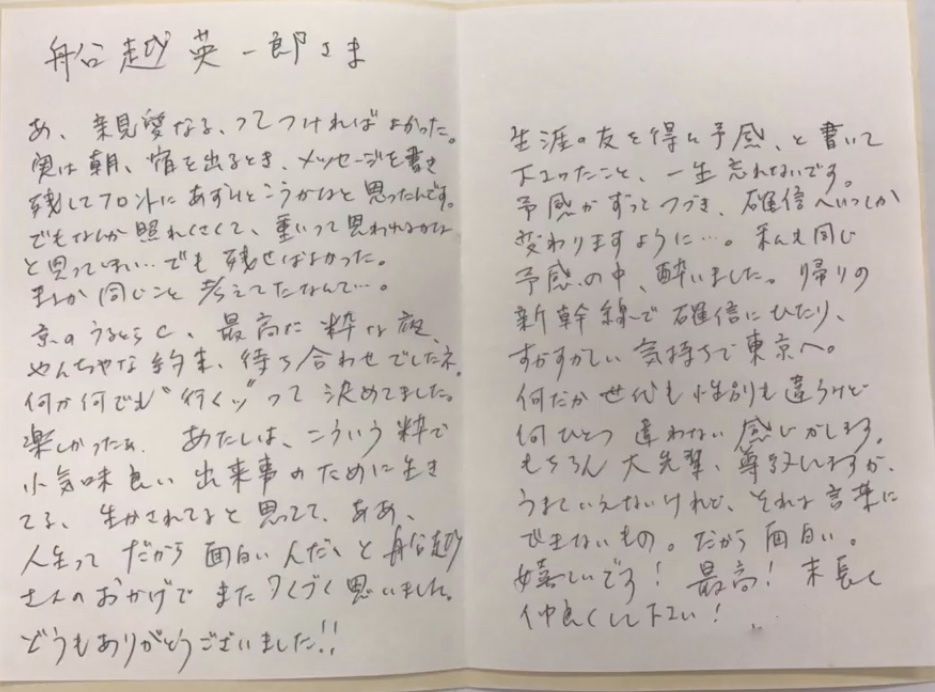 船越英一郎さま
あ、親愛なる、ってつければよかった。
実は朝、宿を出るとき、メッセージを書き
残してフロントにあずけとこうかなと思ったんです。
でもなんか照れくさくて、重いって思われるかな
と思ってしまい…でも残せばよかった。
まさか同じこと考えてたなんて…。
京のうるとらC、最高に粋な夜、
やんちゃな約束、待ち合わせでしたネ。
何が何でも“行くッ”って決めてました。
楽しかったぁ あたしは、こういう粋で
小気味良い出来事のために生き
てる、生かされてると思ってて、ああ、
人生ってだから面白いんだ、と船越
さんのおかげでまたつくづく思いました。
どうもありがとうございました!!
生涯の友を得た予感、と書いて
下さったこと、一生忘れないです。
予感がずっとつづき、確信へいつしか
変わりますように…。私も同じ
予感の中、酔いました。帰りの
新幹線で確信にひたり、
すがすがしい気持ちで東京へ。
何だか世代も性別も違うけど
何ひとつ違わない感じがします。
もちろん大先輩、尊敬しますが、
うまくいえないけれど、それは言葉に
できないもの。だから面白い。
嬉しいです!最高!末長く
仲良くして下さい!